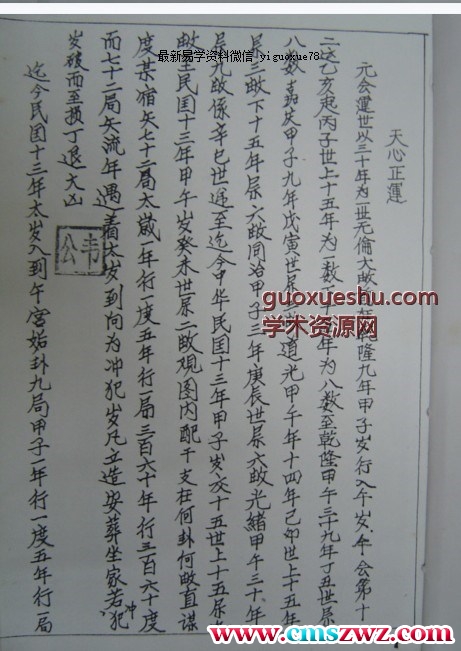 最新易学资料微信 yiguoxue78
天心正運
元会運世以三十年為一世无倫大敂隆九年甲子岁行入午岁午会第十
二这乙亥起丙子世上十五年为一数下十年为八数至乾隆甲午三十九年丁丑世屬
八数嘉庆甲子九年戊寅世屬道光甲午年十四年己卯世上十五年
屬三敂下十五年屬六敂同治甲子三年庚辰世屬六敂光緒甲午三十年
屬九敂係辛巳世遥至迄今中华民国十三年甲子岁交十五世上十五屬
敂至民国十三年甲午岁癸未世屬二敂观图内配干支在何卦何敂直謀
度某宿矢七十二局太歲一年行一度五年行一局三百六十年行三百六十度
而七十二局矢流年遇着太岁到向为冲犯岁凡立造安葬坐家若犯
冲
岁破而至损丁退大凶
韦公
迄今民国十三年太岁入到午宫姤卦九局甲子一年行一度五年行一局
guoxueshu.com
学术资源网
www.cmszwz.com